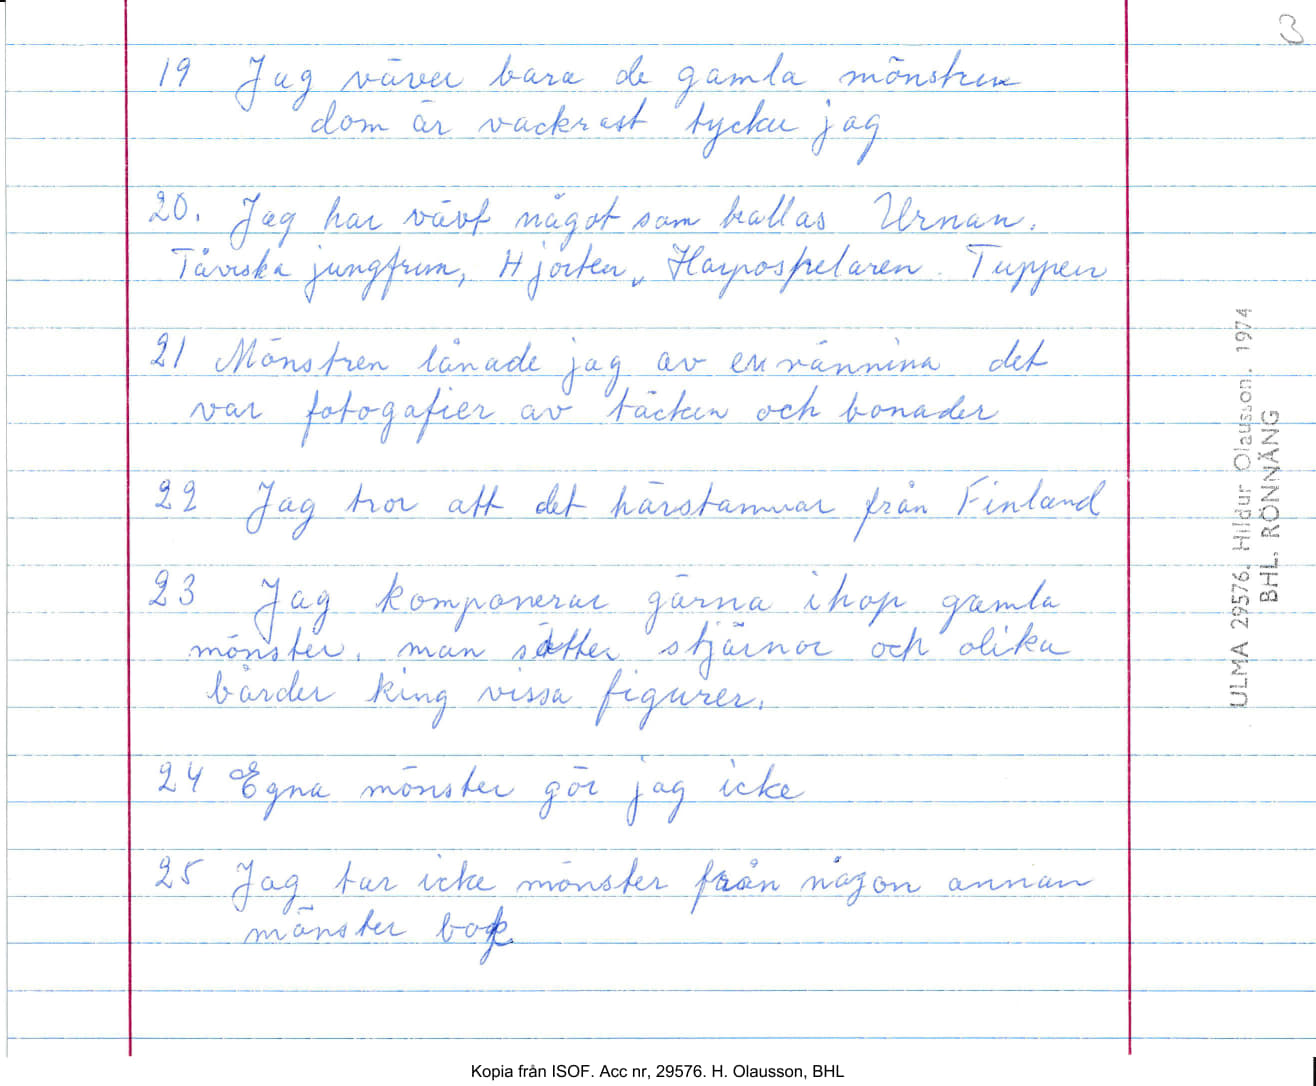 3
19 Jag väver bara de gamla mönstren
dom är vackrast tycker jag
20. Jag har vävt något som kallas Urnan.
Tåvska jungfrun, Hjorten, Harpospelaren. Tuppen
21 Mönstren lånade jag av en vännina det
var fotogafier av täcken och bonader
22 Jag tror att det härstammar från Finland
23 Jag komponerar gärna ihop gamla
mönster. man sätter stjärnor och olika
bårder king vissa figurer.
24 Egna mönster gör jag icke
25 Jag tar icke mönster från någon annan
mönster bok
ULMA 29576. Hildur Olausson. 1974
BHL. RÖNNÄNG
Kopia från ISOF. Acc nr, 29576. H. Olausson, BHL